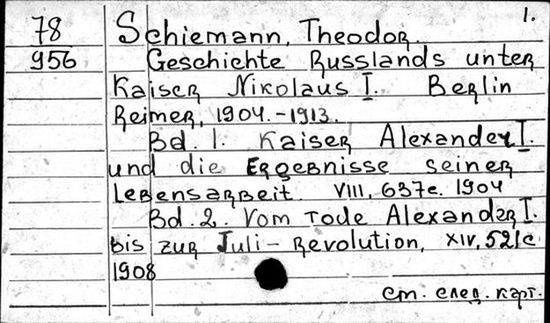 1.
78 Schiemann, Theodor
956 Geschichte Russlands unter
Kaiser Nikolaus I. Berlin
Reimer, 1904.-1913.
Bd. 1. Kaiser Alexander I.
und die Ergebnisse seiner
Lebensarbeit. VIII, 637c. 1904
Bd. 2. Vom Tode Alexander I.
bis zur Juli-Revolution, XIV, 521c
1908
См. след. карт.